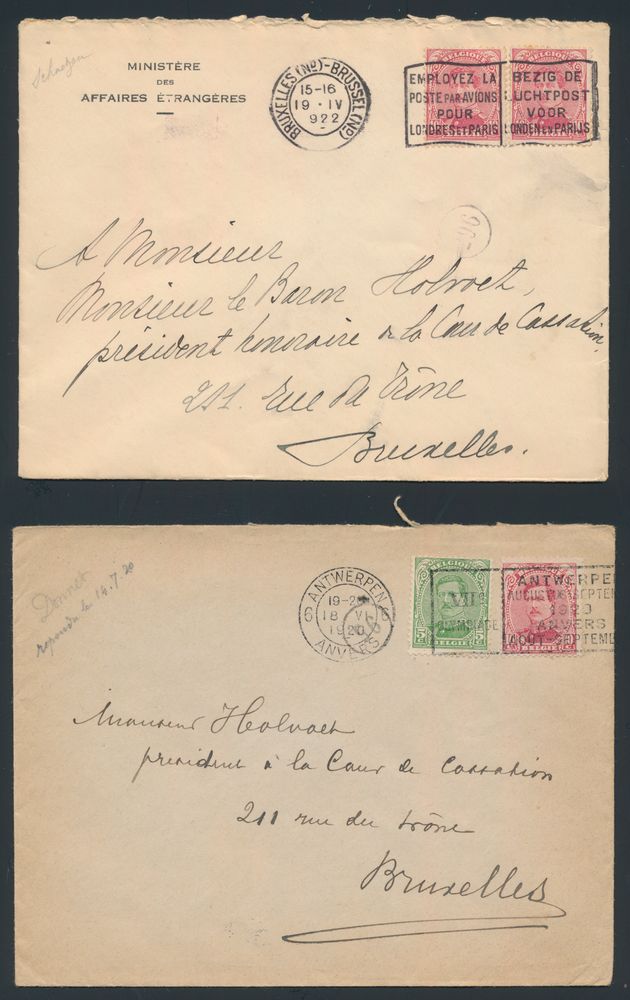 Schaetzen
MINISTÈRE
DES
AFFAIRES ÉTRANGÈRES
BRUXELLES (No)-BRUSSEL (No)
15-16
19 · IV
922
BELGIQUE
BELGIQUE
EMPLOYEZ LA
POSTE PAR AVIONS
POUR
LONDRES ET PARIS
BEZIG DE
LUCHTPOST
VOOR
LONDEN EN PARIJS
A Monsieur
Monsieur le Baron Holvoet,
président honoraire de la Cour de Cassation,
211. rue du Trône
Bruxelles.
Donnet
répondu le 14.7.20
6 ANTWERPEN 6
19-20
18 VI
1920
ANVERS
BELGIQUE
BELGIQUE
VIIE
OLYMPIADE
ANTWERPEN
AUGUSTUS-SEPTE
1920
ANVERS
AOUT-SEPTEMB
BELGIE
BELGIE
Monsieur Holvoet
président à la Cour de Cassation
211 rue du trône
Bruxelles